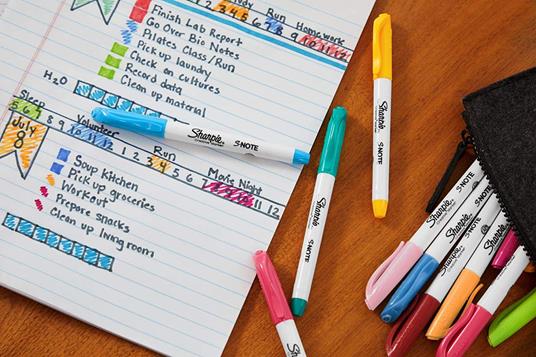 Study Run Homework
Finish Lab Report
Go Over Bio Notes
Pilates Class/Run
Pick up laundry
Check on cultures
Record data
Clean up material
H2O
Sleep
5 6 7 8 9 10 11 12 1 2 3 4 5 6 7 8 9 10 11 12
Volunteer
Run
Movie Night
July
8
Soup Kitchen
Pick up groceries
Workout
Prepare snacks
Clean up living room
Sharpie S·NOTE
Sharpie S·NOTE
Sharpie S·NOTE
S·NOTE
Sharpie S·NOTE
Sharpie S·NOTE
Sharpie S·NOTE
Sharpie
Sharpie